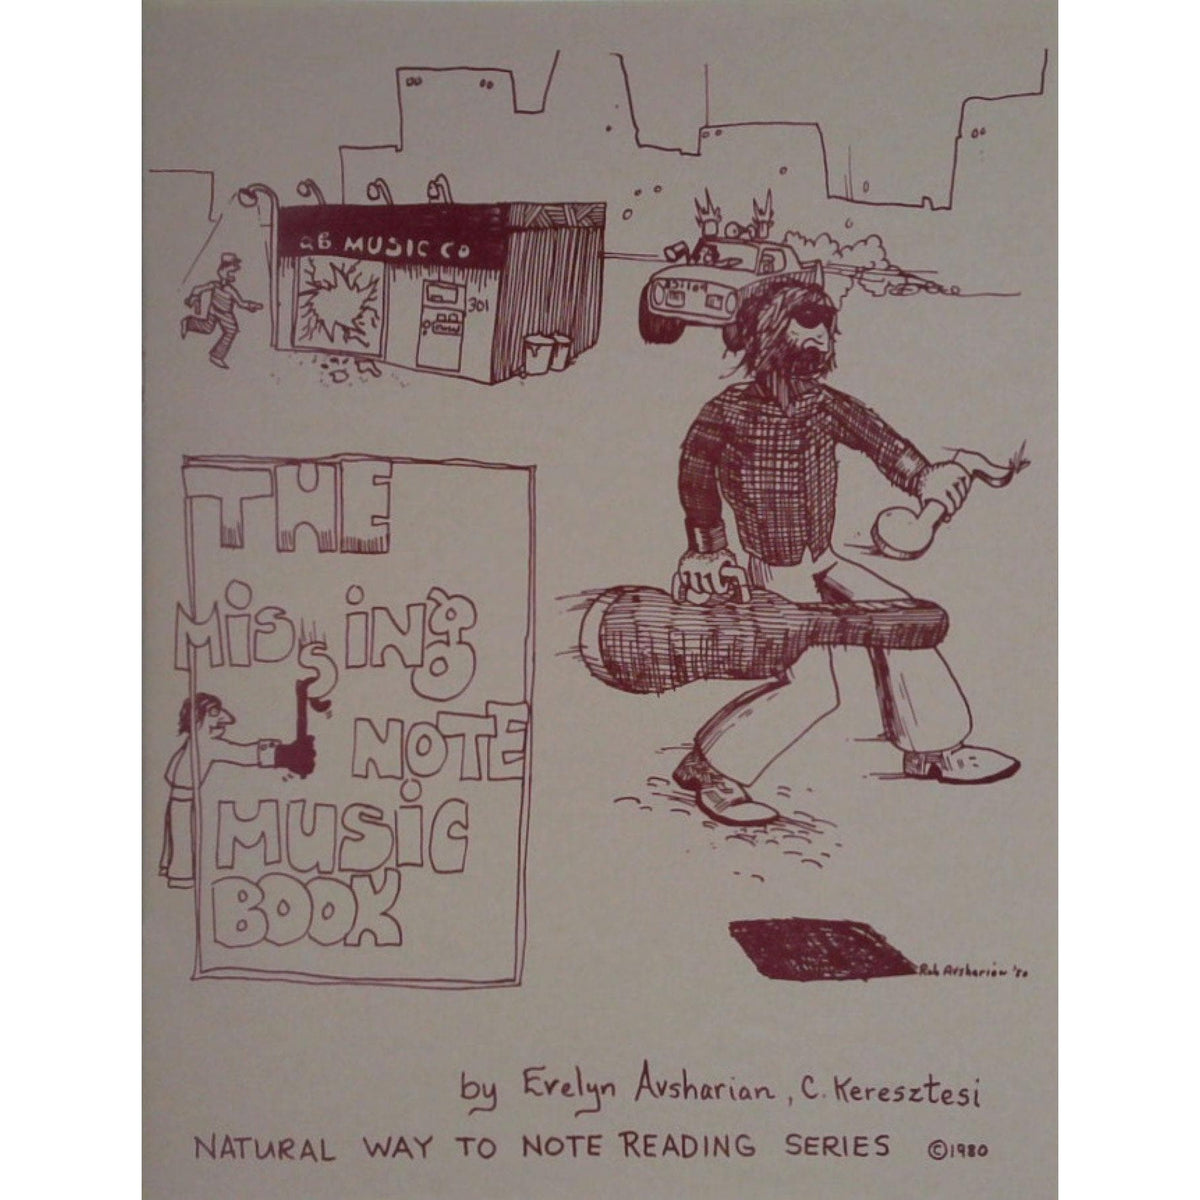 QB MUSIC CO
301
THE
MISSING
NOTE
MUSIC
BOOK
Rob Avsharian '80
by Evelyn Avsharian, C. Keresztesi
NATURAL WAY TO NOTE READING SERIES ©1980